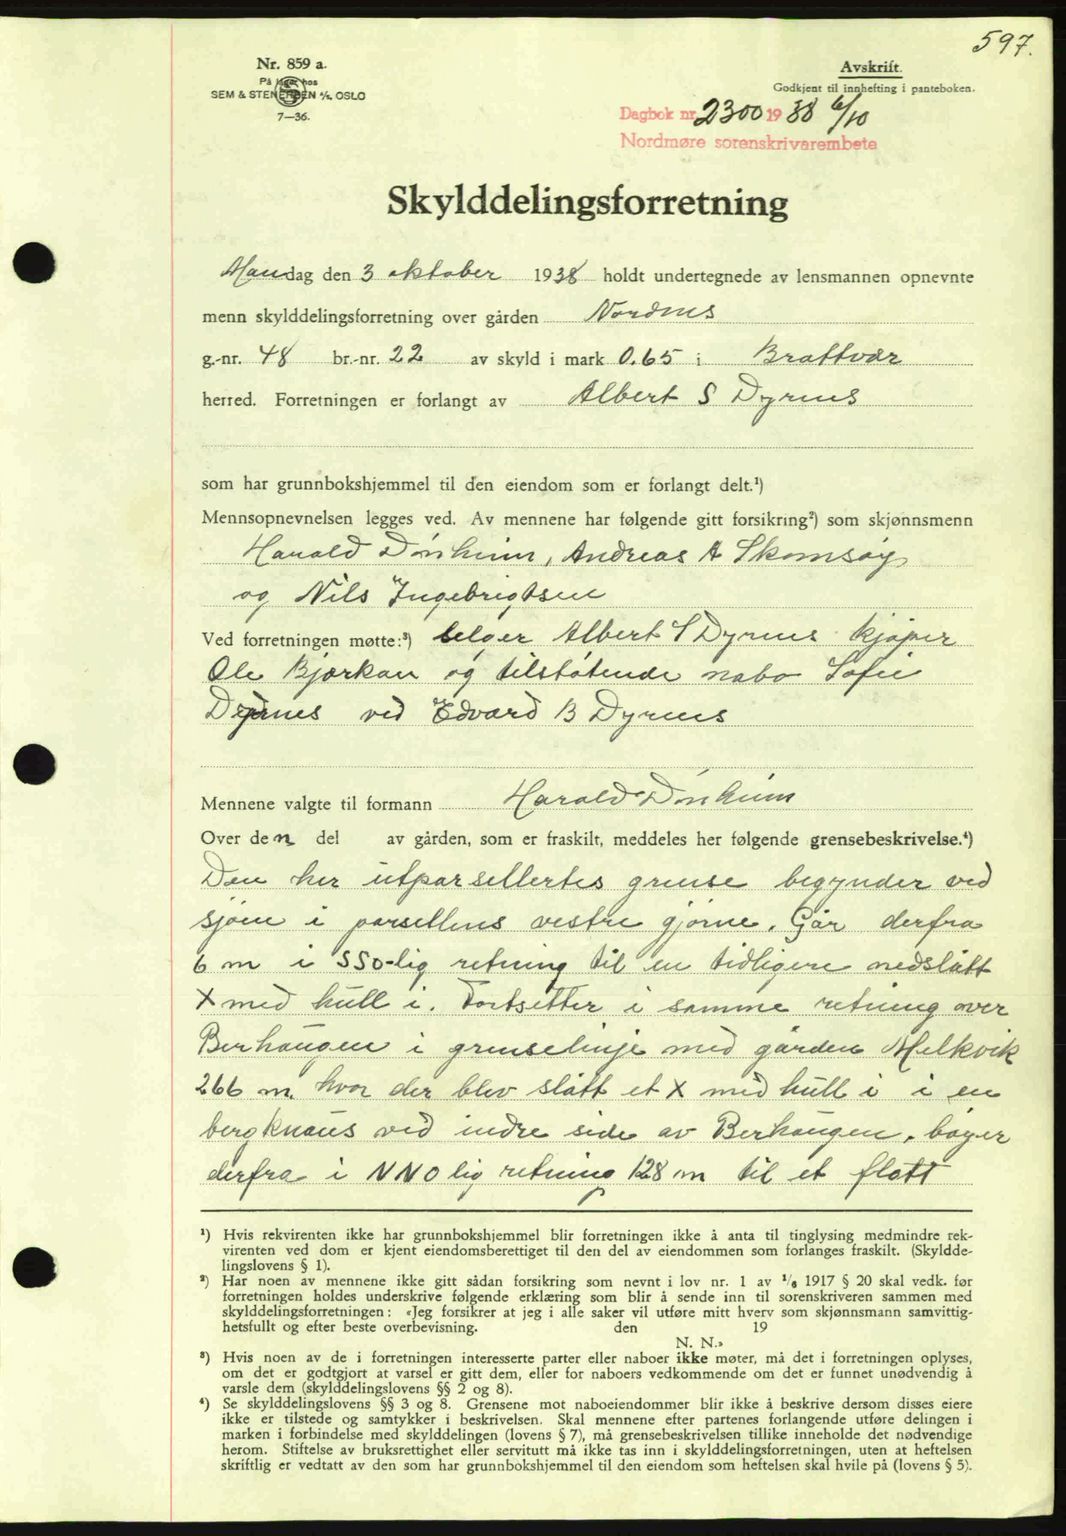 597.
Nr. 859 a.
På lager hos
SEM & STENERSEN A/S, OSLO
7—36.
Avskrift.
Godkjent til innhefting i panteboken.
Dagbok nr. 2300 1938 6/10
Nordmøre sorenskrivarembete
Skylddelingsforretning
Mandag den 3 oktober 1938 holdt undertegnede av lensmannen opnevnte
menn skylddelingsforretning over gården Nordnes
g.-nr. 48 br.-nr. 22 av skyld i mark 0.65 i Brattvær
herred. Forretningen er forlangt av Albert S Dyrnes
som har grunnbokshjemmel til den eiendom som er forlangt delt.¹)
Mennsopnevnelsen legges ved. Av mennene har følgende gitt forsikring²) som skjønnsmenn
Harald Dónheim, Andreas A Skomsøy
og Nils Ingebrigtsen
Ved forretningen møtte:³) Selger Albert S Dyrnes kjøper
Ole Bjørkan og tilstøtende nabo Sofie
Dyrnes ved Edvard B Dyrnes
Mennene valgte til formann Harald Dónheim
Over den del av gården, som er fraskilt, meddeles her følgende grensebeskrivelse.⁴)
Den her utparsellertes grense begynder ved
sjøen i parsellens vestre hjørne. Går derfra
6 m i SSO-lig retning til en tidligere nedslått
X med hull i. Fortsetter i samme retning over
Berhaugen i grenselinje med gården Melkvik
266 m. hvor der blev slått et X med hull i i en
bergknaus ved indre side av Berhaugen, bøyer
derfra i NNO lig retning 128 m til et flatt
¹) Hvis rekvirenten ikke har grunnbokshjemmel blir forretningen ikke å anta til tinglysing medmindre rek-
virenten ved dom er kjent eiendomsberettiget til den del av eiendommen som forlanges fraskilt. (Skyldde-
lingslovens § 1).
²) Har noen av mennene ikke gitt sådan forsikring som nevnt i lov nr. 1 av 1/6 1917 § 20 skal vedk. før
forretningen holdes underskrive følgende erklæring som blir å sende inn til sorenskriveren sammen med
skylddelingsforretningen: «Jeg forsikrer at jeg i alle saker vil utføre mitt hverv som skjønnsmann samvittig-
hetsfullt og efter beste overbevisning. den 19
N. N.»
³) Hvis noen av de i forretningen interesserte parter eller naboer ikke møter, må det i forretningen oplyses,
om det er godtgjort at varsel er gitt dem, eller for naboers vedkommende om det er funnet unødvendig å
varsle dem (skylddelingslovens §§ 2 og 8).
⁴) Se skylddelingslovens §§ 3 og 8. Grensene mot naboeiendommer blir ikke å beskrive dersom disses eiere
ikke er tilstede og samtykker i beskrivelsen. Skal mennene efter partenes forlangende utføre delingen i
marken i forbindelse med skylddelingen (lovens § 7), må grensebeskrivelsen tillike inneholde det nødvendige
herom. Stiftelse av bruksrettighet eller servitutt må ikke tas inn i skylddelingsforretningen, uten at heftelsen
skriftlig er vedtatt av den som har grunnbokshjemmel til den eiendom som heftelsen skal hvile på (lovens § 5).